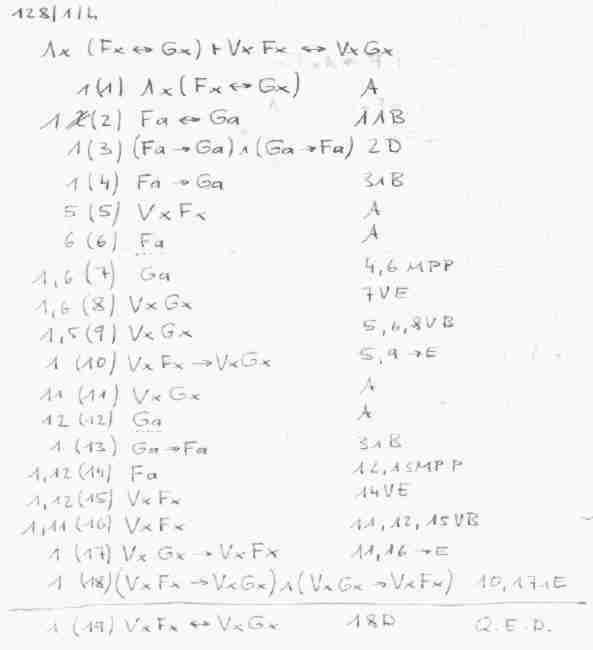 128/1/4
∧x (Fx ↔ Gx) ⊢ Vx Fx ↔ Vx Gx
1 (1) ∧x (Fx ↔ Gx) A
1 (2) Fa ↔ Ga 1∧B
1 (3) (Fa → Ga) ∧ (Ga → Fa) 2D
1 (4) Fa → Ga 3∧B
5 (5) Vx Fx A
6 (6) Fa A
1,6 (7) Ga 4,6 MPP
1,6 (8) Vx Gx 7VE
1,5 (9) Vx Gx 5,6,8VB
1 (10) Vx Fx → Vx Gx 5,9 →E
11 (11) Vx Gx A
12 (12) Ga A
1 (13) Ga → Fa 3∧B
1,12 (14) Fa 12,13MPP
1,12 (15) Vx Fx 14VE
1,11 (16) Vx Fx 11,12,15VB
1 (17) Vx Gx → Vx Fx 11,16 →E
1 (18) (Vx Fx → Vx Gx) ∧ (Vx Gx → Vx Fx) 10,17∧E
1 (19) Vx Fx ↔ Vx Gx 18D Q.E.D.